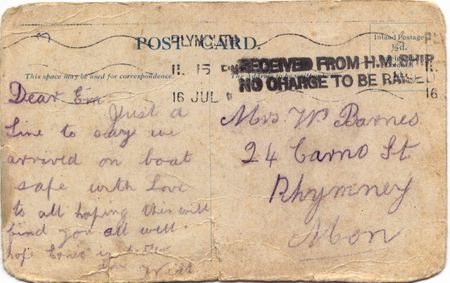 PLYMOUTH
POST CARD.
Inland Postage
½d.
11.15 PM
16 JUL
16
RECEIVED FROM H.M. SHIP
NO CHARGE TO BE RAISED
This space may be used for correspondence.
Dear Em
Just a
line to say we
arrived on boat
safe with Love
to all hoping this will
find you all well
hope
Will
Mrs W Barnes
24 Carno St
Rhymney
Mon